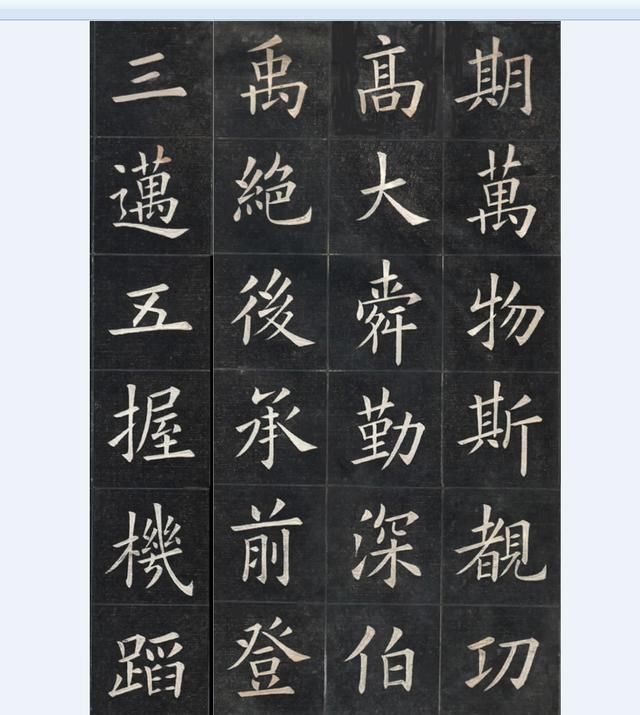 期萬物斯覩功
高大舜勤深伯
禹絶後承前登
三邁五握機蹈